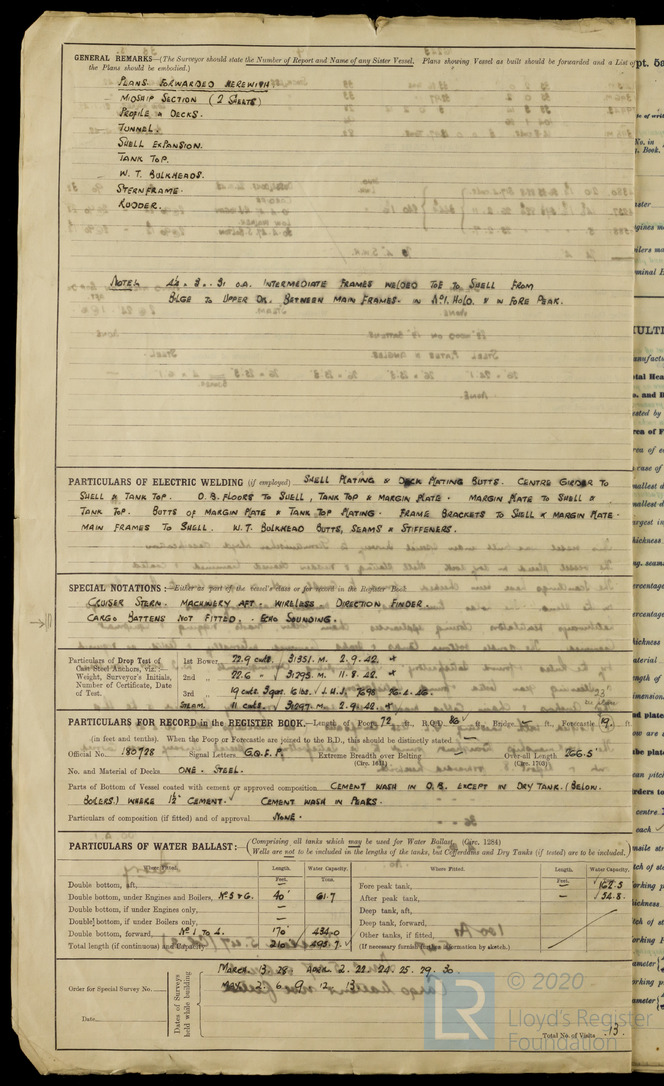 GENERAL REMARKS—(The Surveyor should state the Number of Report and Name of any Sister Vessel. Plans showing Vessel as built should be forwarded and a List of
the Plans should be embodied.)
PLANS FORWARDED HEREWITH
MIDSHIP SECTION (2 SHEETS)
PROFILE & DECKS.
TUNNEL.
SHELL EXPANSION.
TANK TOP.
W. T. BULKHEADS.
STERNFRAME.
RUDDER.
NOTE. 3 . 31 O.A. INTERMEDIATE FRAMES WELDED TOE TO SHELL FROM
BILGE TO UPPER DK. BETWEEN MAIN FRAMES. IN No1. HOLD & IN FORE PEAK.
PARTICULARS OF ELECTRIC WELDING (if employed) SHELL PLATING & DECK PLATING BUTTS. CENTRE GIRDER TO
SHELL & TANK TOP. D.B. FLOORS TO SHELL, TANK TOP & MARGIN PLATE. MARGIN PLATE TO SHELL &
TANK TOP. BUTTS OF MARGIN PLATE & TANK TOP PLATING. FRAME BRACKETS TO SHELL & MARGIN PLATE.
MAIN FRAMES TO SHELL. W.T. BULKHEAD BUTTS, SEAMS & STIFFENERS.
SPECIAL NOTATIONS:—Either as part of the vessel's class or for record in the Register Book.
CRUISER STERN. MACHINERY AFT. WIRELESS DIRECTION FINDER.
CARGO BATTENS NOT FITTED. ECHO SOUNDING.
Particulars of Drop Test of
Cast Steel Anchors, viz.:—
Weight, Surveyor's Initials,
Number of Certificate, Date
of Test.
1st Bower 22.9 cwts. 31351. M. 2.9.42.
2nd „ 22.6 „ 31295. M. 11.8.42.
3rd „ 19 cwts 3 qrs. 16 lbs. L.H.J. 7698 26.2.26.
STREAM. 11 cwts. 31297. M. 2.9.42.
PARTICULARS FOR RECORD in the REGISTER BOOK.—Length of Poop 72 ft., R.Q.D. 86 ft., Bridge — ft., Forecastle 19 ft.
(in feet and tenths). When the Poop or Forecastle are joined to the B.D., this should be distinctly stated —
Official No. 180728 Signal Letters G.Q.F.P. Extreme Breadth over Belting — Over-all Length 266.5'
(Circ. 1611) (Circ. 1703)
No. and Material of Decks ONE - STEEL.
Parts of Bottom of Vessel coated with cement or approved composition CEMENT WASH IN D.B. EXCEPT IN DRY TANK (BELOW
BOILERS) WHERE 1½" CEMENT. CEMENT WASH IN PEAKS.
Particulars of composition (if fitted) and of approval NONE.
PARTICULARS OF WATER BALLAST:—(Comprising all tanks which may be used for Water Ballast (Circ. 1284)
Wells are not to be included in the lengths of the tanks, but Cofferdams and Dry Tanks (if tested) are to be included.)
Where Fitted. Length. Water Capacity. Where Fitted. Length. Water Capacity.
Feet. Tons. Feet. Tons.
Double bottom, aft, — Fore peak tank, — 162.3
Double bottom, under Engines and Boilers, Nos 5 & 6. 40' 61.7 After peak tank, — 34.8
Double bottom, if under Engines only, — Deep tank, aft,
Double bottom, if under Boilers only, — Deep tank, forward,
Double bottom, forward, No 1 TO 4. 170' 434.0 Other tanks, if fitted,
Total length (if continuous) and Capacity 210' 495.7 (If necessary furnish further information by sketch.)
Order for Special Survey No.
Date
Dates of Surveys
held while building
MARCH. 13. 28 APRIL. 2. 22. 24. 25. 29. 30.
MAY. 3. 6 9. 12 13.
Total No. of Visits 13.
© 2020
Lloyd's Register
Foundation
LR